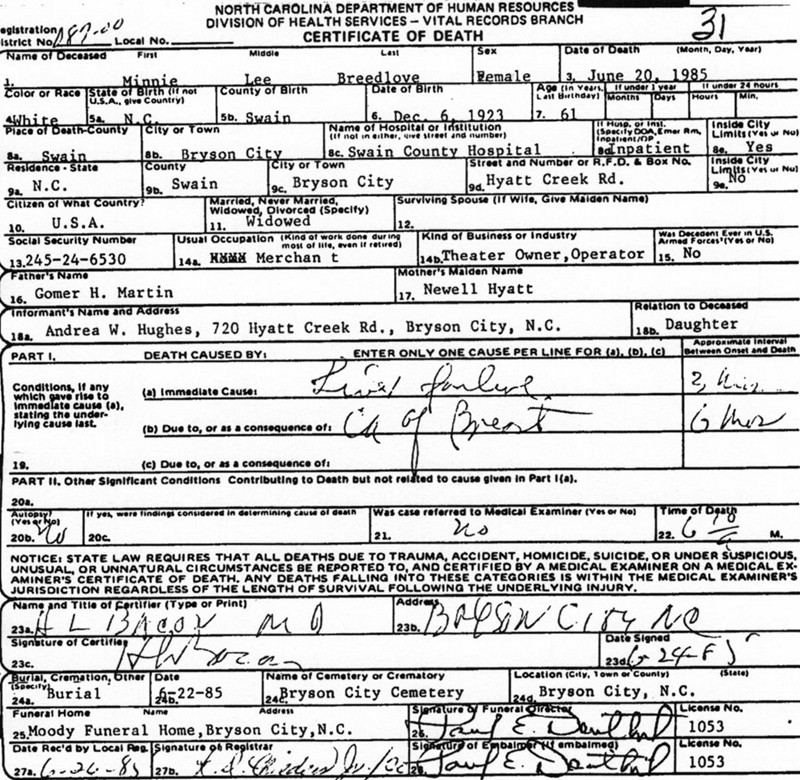 NORTH CAROLINA DEPARTMENT OF HUMAN RESOURCES
DIVISION OF HEALTH SERVICES - VITAL RECORDS BRANCH
CERTIFICATE OF DEATH
31
Registration District No. Local No.
Name of Deceased First Middle Last Sex Date of Death (Month, Day, Year)
1. Minnie Lee Breedlove 2. Female 3. June 20, 1985
Color or Race State of Birth (If not U.S.A., give Country) County of Birth Date of Birth Age (In Years, Last Birthday) If under 1 year Months Days If under 24 hours Hours Min.
4. White 5a. N.C. 5b. Swain 6. Dec. 6, 1923 7. 61
Place of Death-County City or Town Name of Hospital or Institution (If not in either, give street and number) If Hosp. or Inst. (Specify DOA, Emer Rm, Inpatient/OP Inside City Limits (Yes or No)
8a. Swain 8b. Bryson City 8c. Swain County Hospital 8d. Inpatient 8e. Yes
Residence - State County City or Town Street and Number or R.F.D. & Box No. Inside City Limits (Yes or No)
9a. N.C. 9b. Swain 9c. Bryson City 9d. Hyatt Creek Rd. 9e. No
Citizen of What Country? Married, Never Married, Widowed, Divorced (Specify) Surviving Spouse (If Wife, Give Maiden Name)
10. U.S.A. 11. Widowed 12.
Social Security Number Usual Occupation (Kind of work done during most of life, even if retired) Kind of Business or Industry Was Decedent Ever in U.S. Armed Forces? (Yes or No)
13. 245-24-6530 14a. Merchan t 14b. Theater Owner,Operator 15. No
Father's Name Mother's Maiden Name
16. Gomer H. Martin 17. Newell Hyatt
Informant's Name and Address Relation to Deceased
18a. Andrea W. Hughes, 720 Hyatt Creek Rd., Bryson City, N.C. 18b. Daughter
PART I. DEATH CAUSED BY: ENTER ONLY ONE CAUSE PER LINE FOR (a), (b), (c) Approximate Interval Between Onset and Death
Conditions, if any which gave rise to immediate cause (a), stating the underlying cause last.
(a) Immediate Cause: Liver failure
(b) Due to, or as a consequence of: Ca of Breast 6 mos
19. (c) Due to, or as a consequence of:
PART II. Other Significant Conditions Contributing to Death but not related to cause given in Part I(a).
20a.
Autopsy? (Yes or No) If yes, were findings considered in determining cause of death Was case referred to Medical Examiner (Yes or No) Time of Death
20b. No 20c. 21. No 22. M.
NOTICE: STATE LAW REQUIRES THAT ALL DEATHS DUE TO TRAUMA, ACCIDENT, HOMICIDE, SUICIDE, OR UNDER SUSPICIOUS,
UNUSUAL, OR UNNATURAL CIRCUMSTANCES BE REPORTED TO, AND CERTIFIED BY A MEDICAL EXAMINER ON A MEDICAL EX-
AMINER'S CERTIFICATE OF DEATH. ANY DEATHS FALLING INTO THESE CATEGORIES IS WITHIN THE MEDICAL EXAMINER'S
JURISDICTION REGARDLESS OF THE LENGTH OF SURVIVAL FOLLOWING THE UNDERLYING INJURY.
Name and Title of Certifier (Type or Print) Address
23a. H L BACON MD 23b. BRYSON CITY NC
Signature of Certifier Date Signed
23c. HL Bacon 23d. 6-24-85
Burial, Cremation, Other (Specify) Date Name of Cemetery or Crematory Location (City, Town or County) (State)
24a. Burial 24b. 6-22-85 24c. Bryson City Cemetery 24d. Bryson City, N.C.
Funeral Home Name Address Signature of Funeral Director License No.
25. Moody Funeral Home,Bryson City,N.C. 26. 1053
Date Rec'd by Local Reg. Signature of Registrar Signature of Embalmer (If embalmed) License No.
27a. 27b. 28. 1053